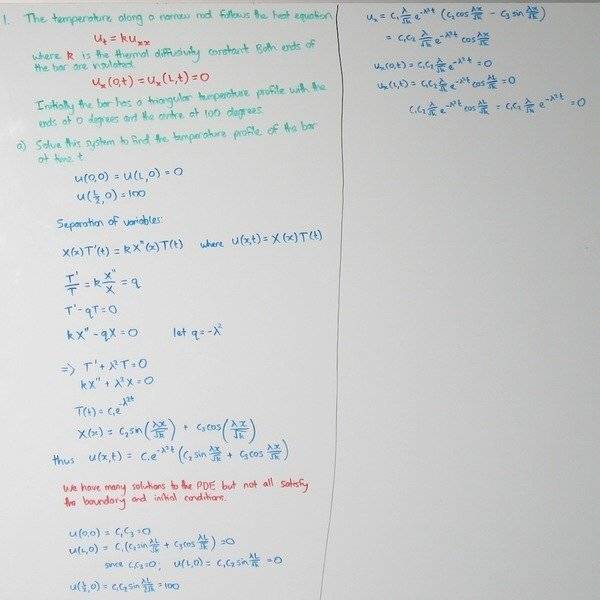 1. The temperature along a narrow rod follows the heat equation
u_t = k u_xx
where k is the thermal diffusivity constant. Both ends of
the bar are insulated.
u_x(0,t) = u_x(L,t) = 0
Initially the bar has a triangular temperature profile with the
ends at 0 degrees and the centre at 100 degrees.
a) Solve this system to find the temperature profile of the bar
at time t
u(0,0) = u(L,0) = 0
u(L/2,0) = 100
Separation of variables:
X(x)T'(t) = kX''(x)T(t) where u(x,t) = X(x)T(t)
T'/T = k X''/X = q
T' - qT = 0
kX'' - qX = 0 let q = -λ²
=> T' + λ²T = 0
kX'' + λ²X = 0
T(t) = c₁e^(-λ²t)
X(x) = c₂ sin(λx/√k) + c₃ cos(λx/√k)
thus u(x,t) = c₁e^(-λ²t) (c₂ sin λx/√k + c₃ cos λx/√k)
We have many solutions to the PDE but not all satisfy
the boundary and initial conditions.
u(0,0) = c₁c₃ = 0
u(L,0) = c₁(c₂ sin λL/√k + c₃ cos λL/√k) = 0
since c₁c₃ = 0; u(L,0) = c₁c₂ sin λL/√k = 0
u(L/2,0) = c₁c₂ sin λL/2√k = 100
u_x = c₁ λ/√k e^(-λ²t) (c₂ cos λx/√k - c₃ sin λx/√k)
= c₁c₂ λ/√k e^(-λ²t) cos λx/√k
u_x(0,t) = c₁c₂ λ/√k e^(-λ²t) = 0
u_x(L,t) = c₁c₂ λ/√k e^(-λ²t) cos λL/√k = 0
c₁c₂ λ/√k e^(-λ²t) cos λL/√k = c₁c₂ λ/√k e^(-λ²t) = 0